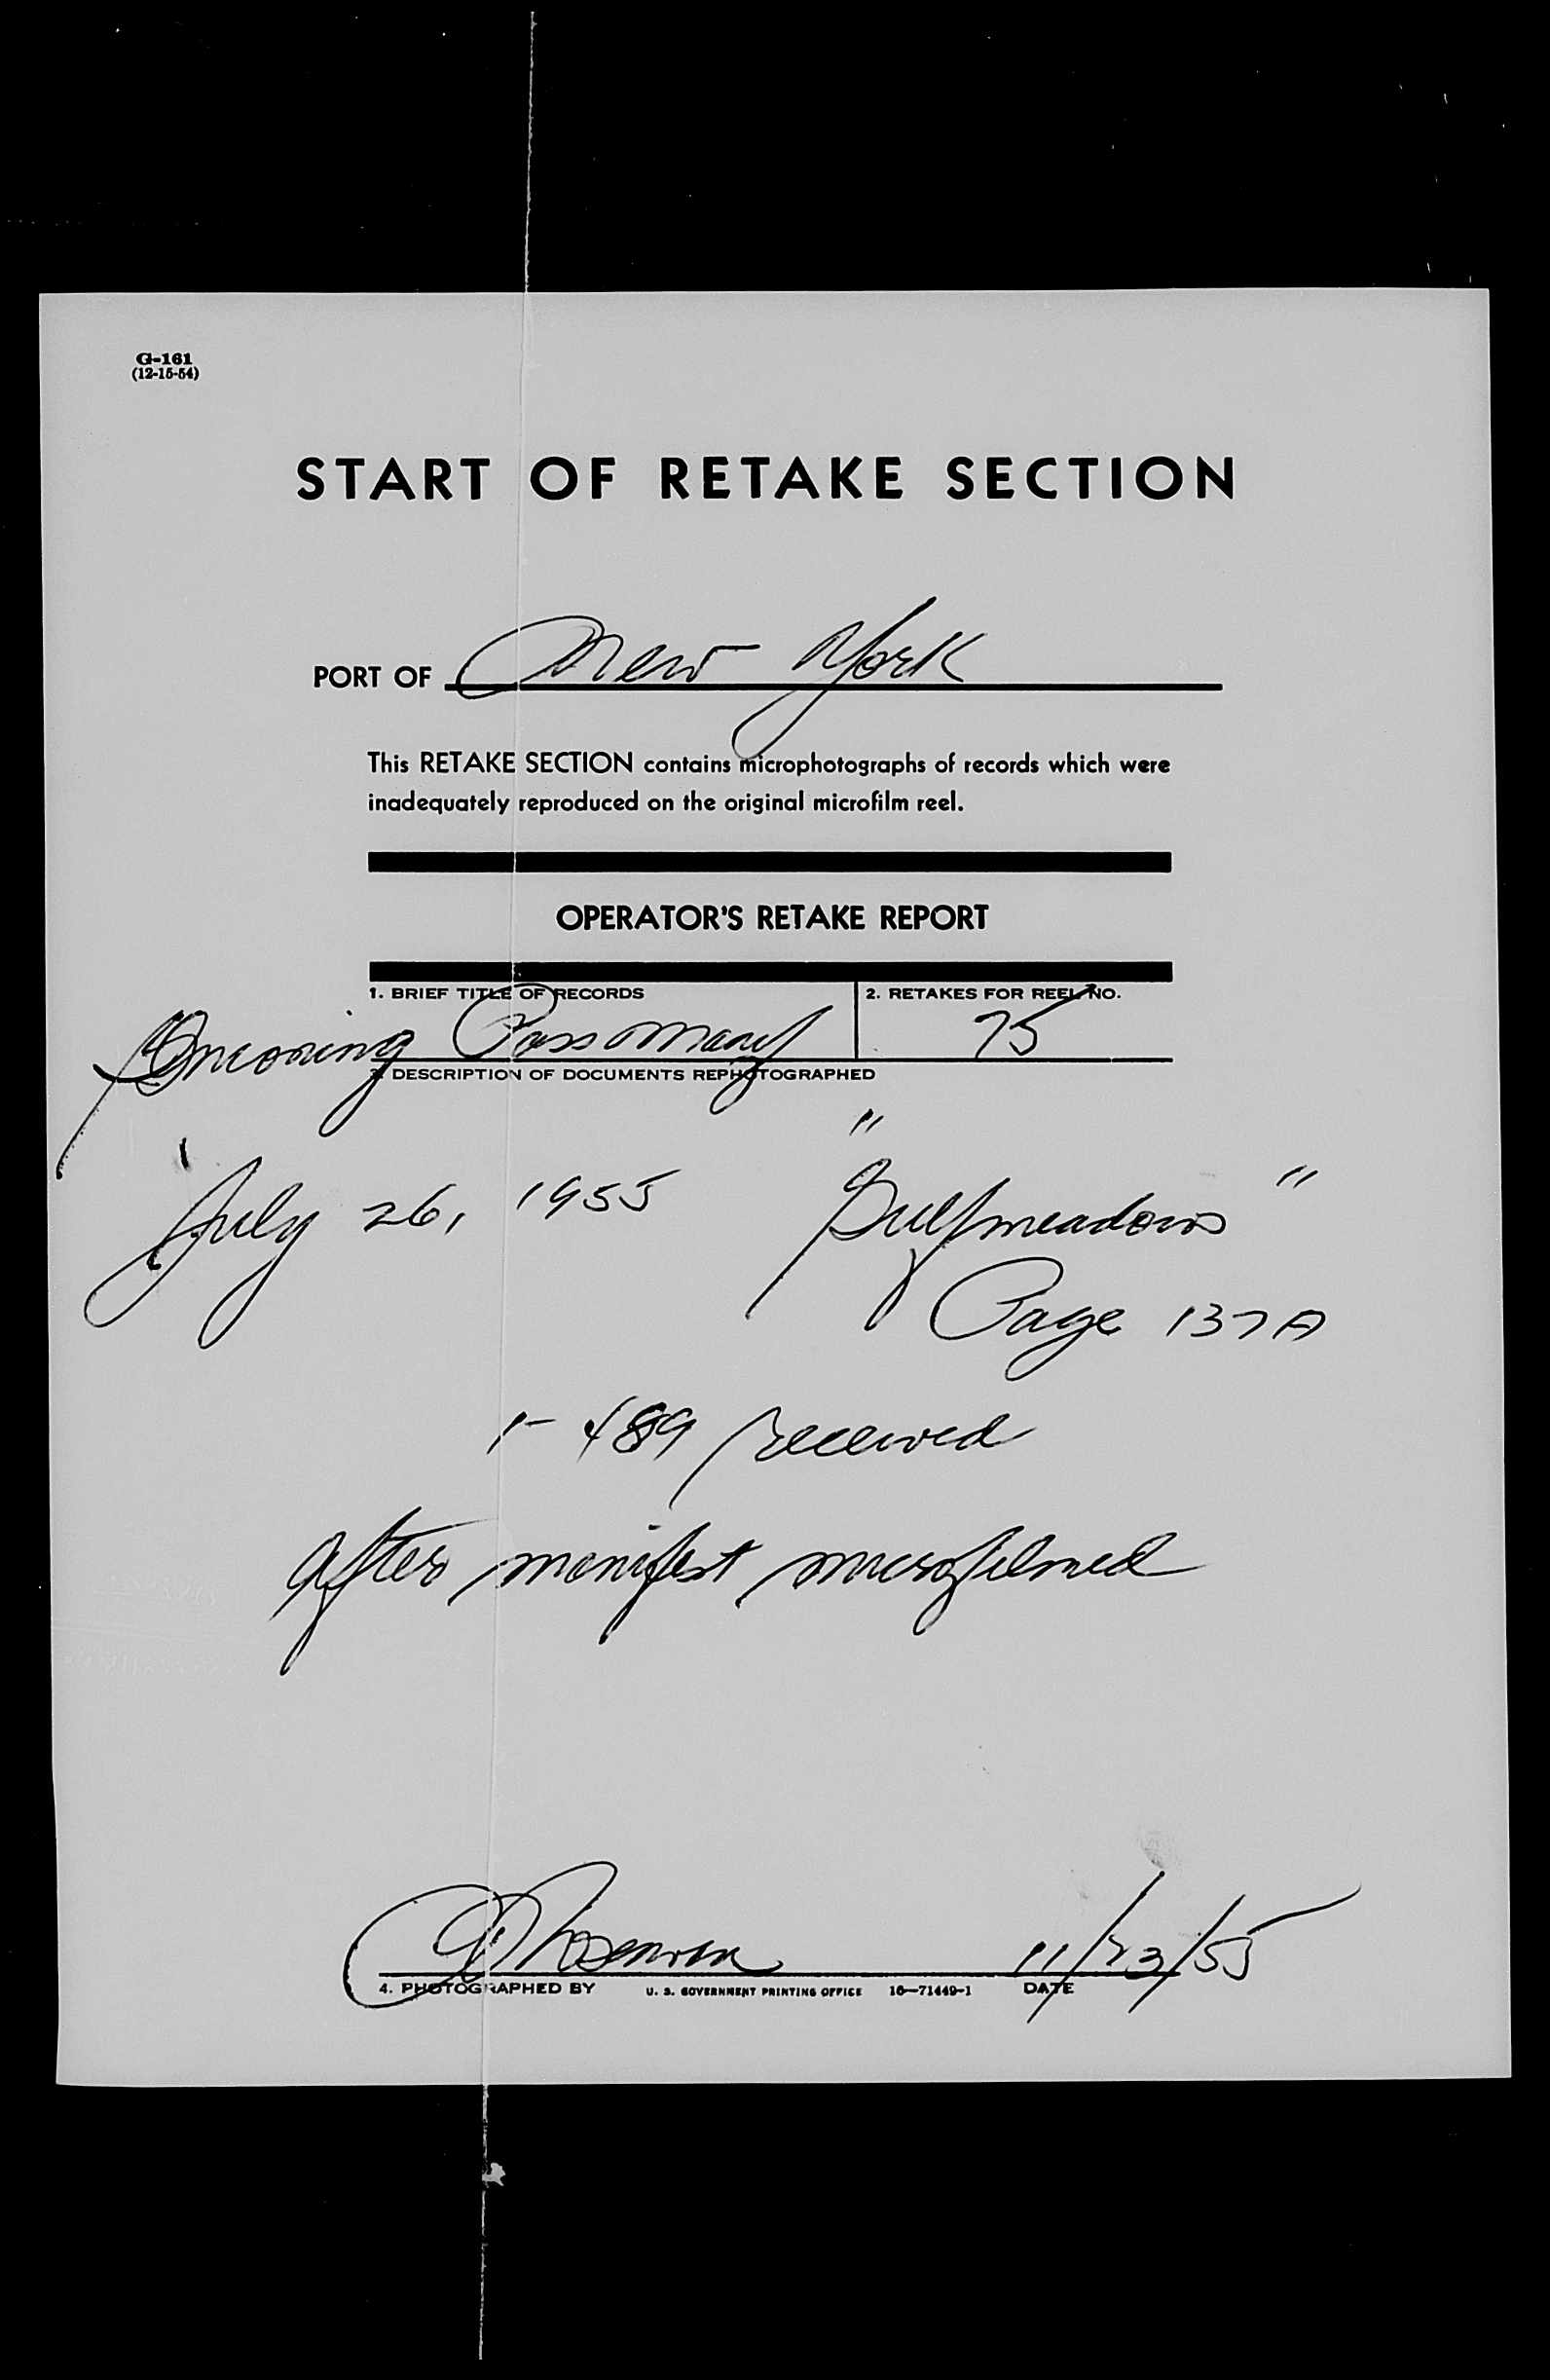 G-161
(12-15-54)
START OF RETAKE SECTION
PORT OF New York
This RETAKE SECTION contains microphotographs of records which were
inadequately reproduced on the original microfilm reel.
OPERATOR'S RETAKE REPORT
1. BRIEF TITLE OF RECORDS 2. RETAKES FOR REEL NO.
Incoming Pass Manif 75
3. DESCRIPTION OF DOCUMENTS REPHOTOGRAPHED
July 26, 1955 "Gulfmeadows"
Page 137A
1- 489 received
after manifest microfilmed
11/23/55
4. PHOTOGRAPHED BY U. S. GOVERNMENT PRINTING OFFICE 16—71449-1 DATE